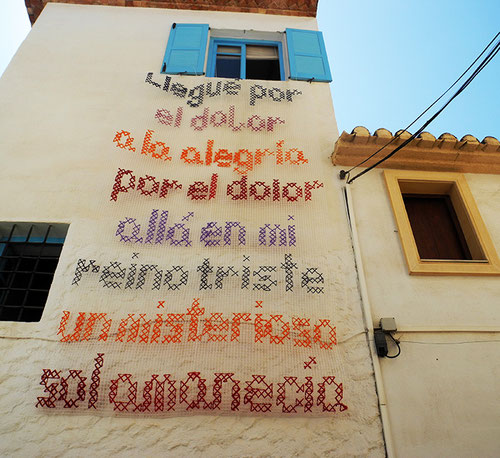 Llegué por
el dolor
a la alegría
por el dolor
allá en mi
reino triste
un misterioso
sol amanecía